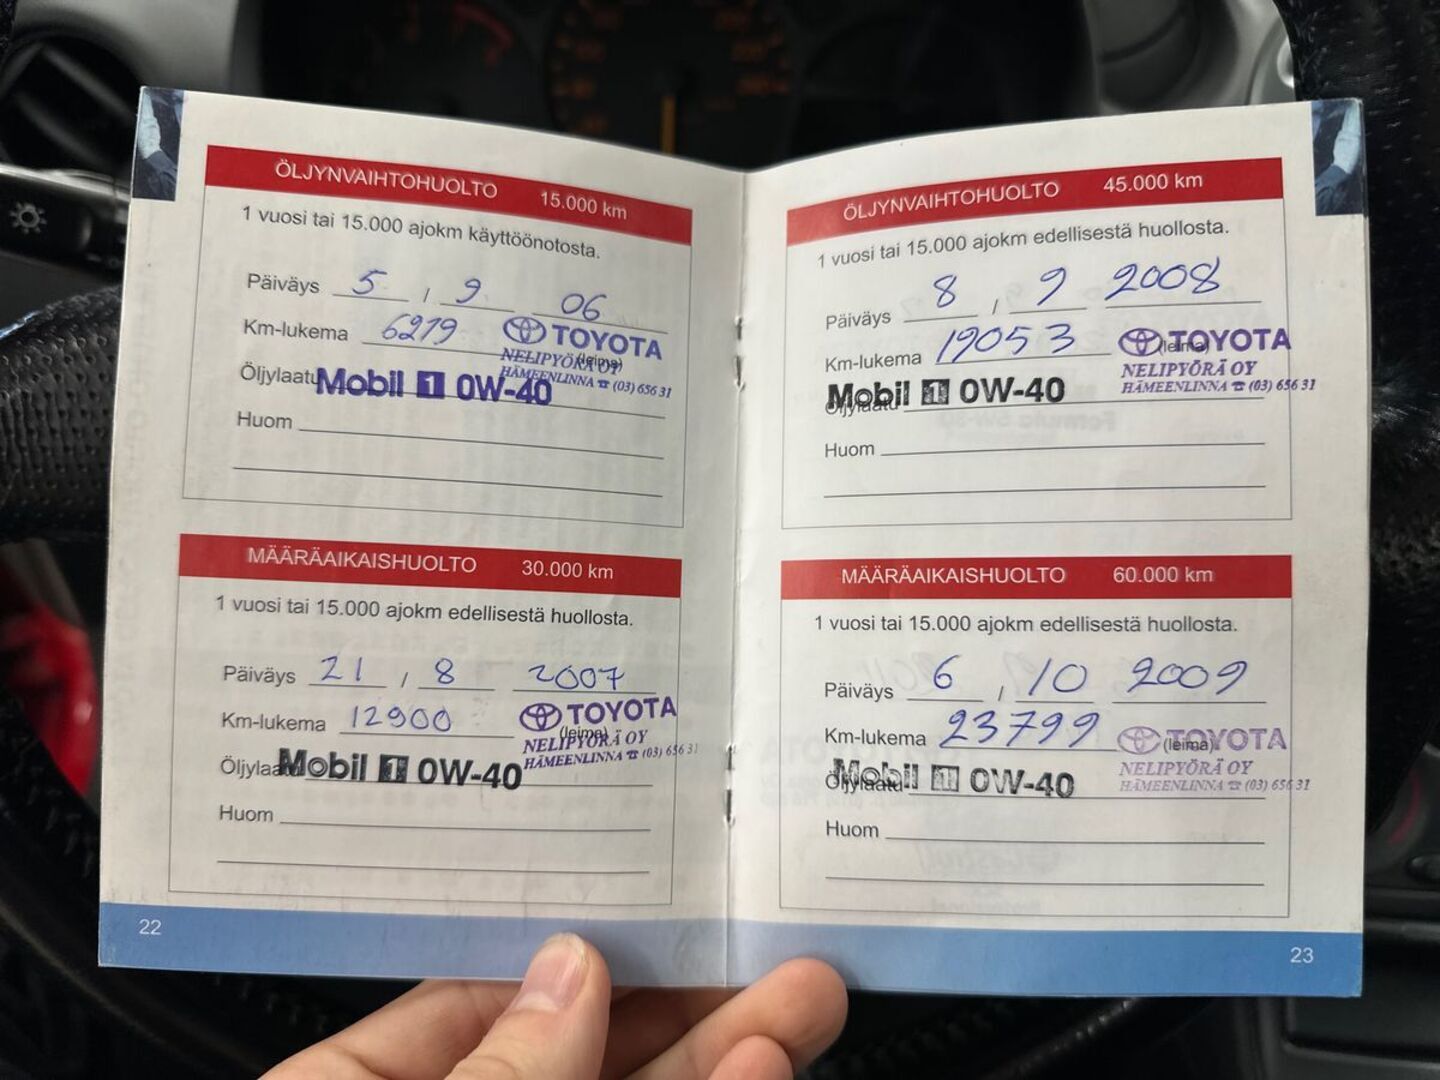 ÖLJYNVAIHTOHUOLTO 15.000 km
1 vuosi tai 15.000 ajokm käyttöönotosta.
Päiväys 5 / 9 06
Km-lukema 6279
TOYOTA
(leima)
NELIPYÖRÄ OY
HÄMEENLINNA ☎ (03) 656 31
Öljylaatu Mobil 1 0W-40
Huom
MÄÄRÄAIKAISHUOLTO 30.000 km
1 vuosi tai 15.000 ajokm edellisestä huollosta.
Päiväys 21 / 8 2007
Km-lukema 12900
TOYOTA
(leima)
NELIPYÖRÄ OY
HÄMEENLINNA ☎ (03) 656 31
Öljylaatu Mobil 1 0W-40
Huom
22
ÖLJYNVAIHTOHUOLTO 45.000 km
1 vuosi tai 15.000 ajokm edellisestä huollosta.
Päiväys 8 / 9 2008
Km-lukema 19053
TOYOTA
(leima)
NELIPYÖRÄ OY
HÄMEENLINNA ☎ (03) 656 31
Öljylaatu Mobil 1 0W-40
Huom
MÄÄRÄAIKAISHUOLTO 60.000 km
1 vuosi tai 15.000 ajokm edellisestä huollosta.
Päiväys 6 / 10 2009
Km-lukema 23799
TOYOTA
(leima)
NELIPYÖRÄ OY
HÄMEENLINNA ☎ (03) 656 31
Öljylaatu Mobil 1 0W-40
Huom
23